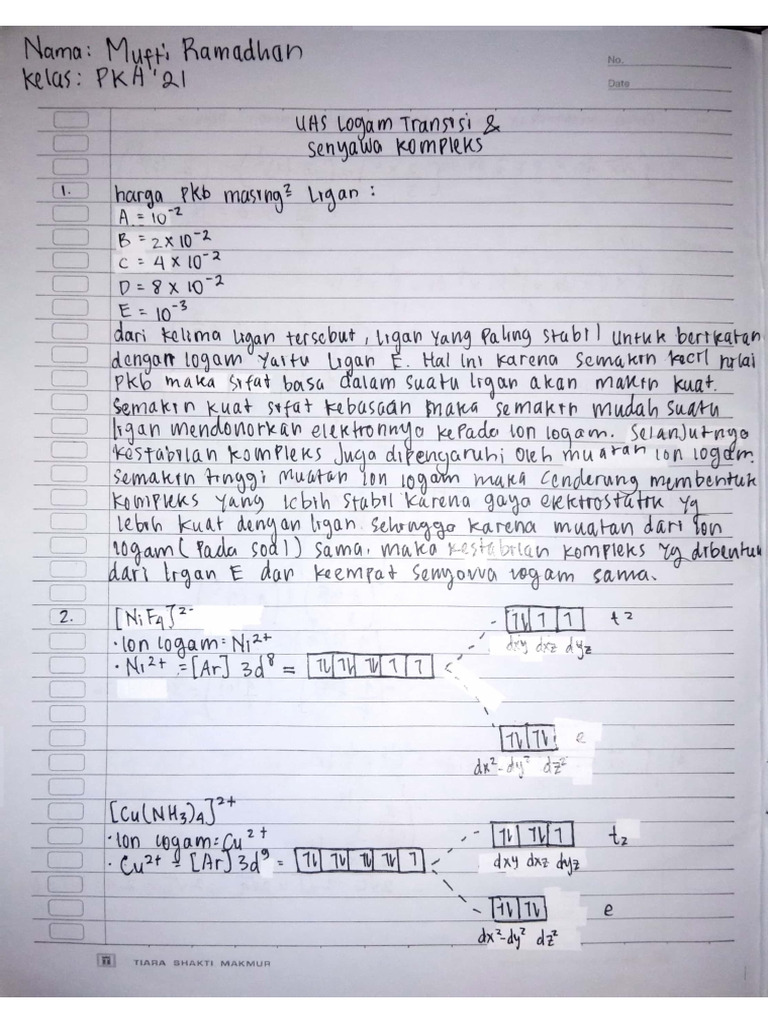 Nama: Mufti Ramadhan
Kelas: PKA'21
No.
Date
UAS Logam Transisi &
Senyawa Kompleks
1. harga Pkb masing² Ligan :
A = 10⁻²
B = 2 x 10⁻²
C = 4 x 10⁻²
D = 8 x 10⁻²
E = 10⁻³
dari kelima ligan tersebut, ligan yang paling stabil untuk berikatan
dengan logam yaitu Ligan E. Hal ini karena semakin kecil nilai
Pkb maka sifat basa dalam suatu ligan akan makin kuat.
Semakin kuat sifat kebasaan maka semakin mudah suatu
ligan mendonorkan elektronnya kepada ion logam. Selanjutnya
kestabilan kompleks juga dipengaruhi oleh muatan ion logam.
Semakin tinggi muatan ion logam maka cenderung membentuk
kompleks yang lebih stabil karena gaya elektrostatik yg
lebih kuat dengan ligan. Sehingga karena muatan dari ion
logam (pada soal) sama, maka kestabilan kompleks yg dibentuk
dari ligan E dan keempat senyawa logam sama.
2. [NiF4]²⁻
• Ion logam = Ni²⁺
• Ni²⁺ = [Ar] 3d⁸ = ⥮ ⥮ ⥮ 1 1
⥮ 1 1 t2
dxy dxz dyz
⥮ ⥮ e
dx²-dy² dz²
[Cu(NH3)4]²⁺
• Ion logam = Cu²⁺
• Cu²⁺ = [Ar] 3d⁹ = ⥮ ⥮ ⥮ ⥮ 1
⥮ ⥮ 1 t2
dxy dxz dyz
⥮ ⥮ e
dx²-dy² dz²
TIARA SHAKTI MAKMUR